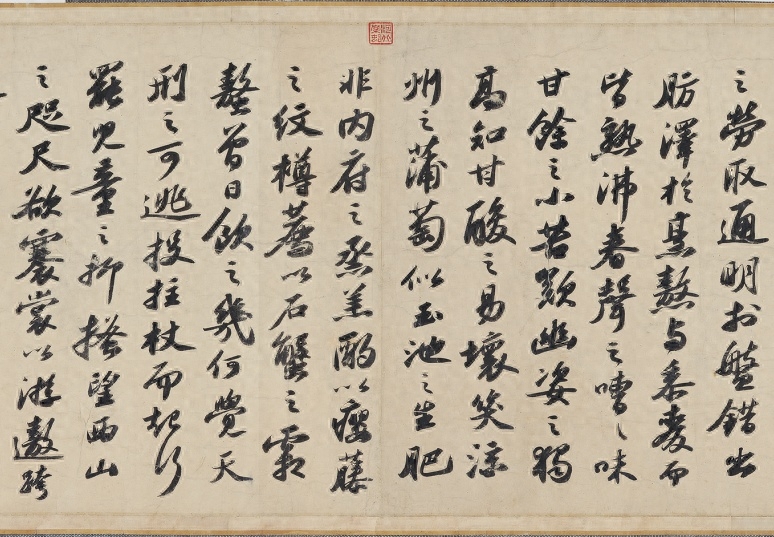 之勞取通明於盤錯出
肪澤於烹熬與黍麥而
皆熟沸舂聲之嘈〻味
甘餘之小苦歎幽姿之獨
高知甘酸之易壞笑涼
州之蒲萄似玉池之生肥
非内府之烝羔酌以癭藤
之紋樽薦以石蟹之霜
螯曾日飲之幾何覺天
刑之可逃投拄杖而起行
罷兒童之抑搔望西山
之咫尺欲褰裳以游遨跨